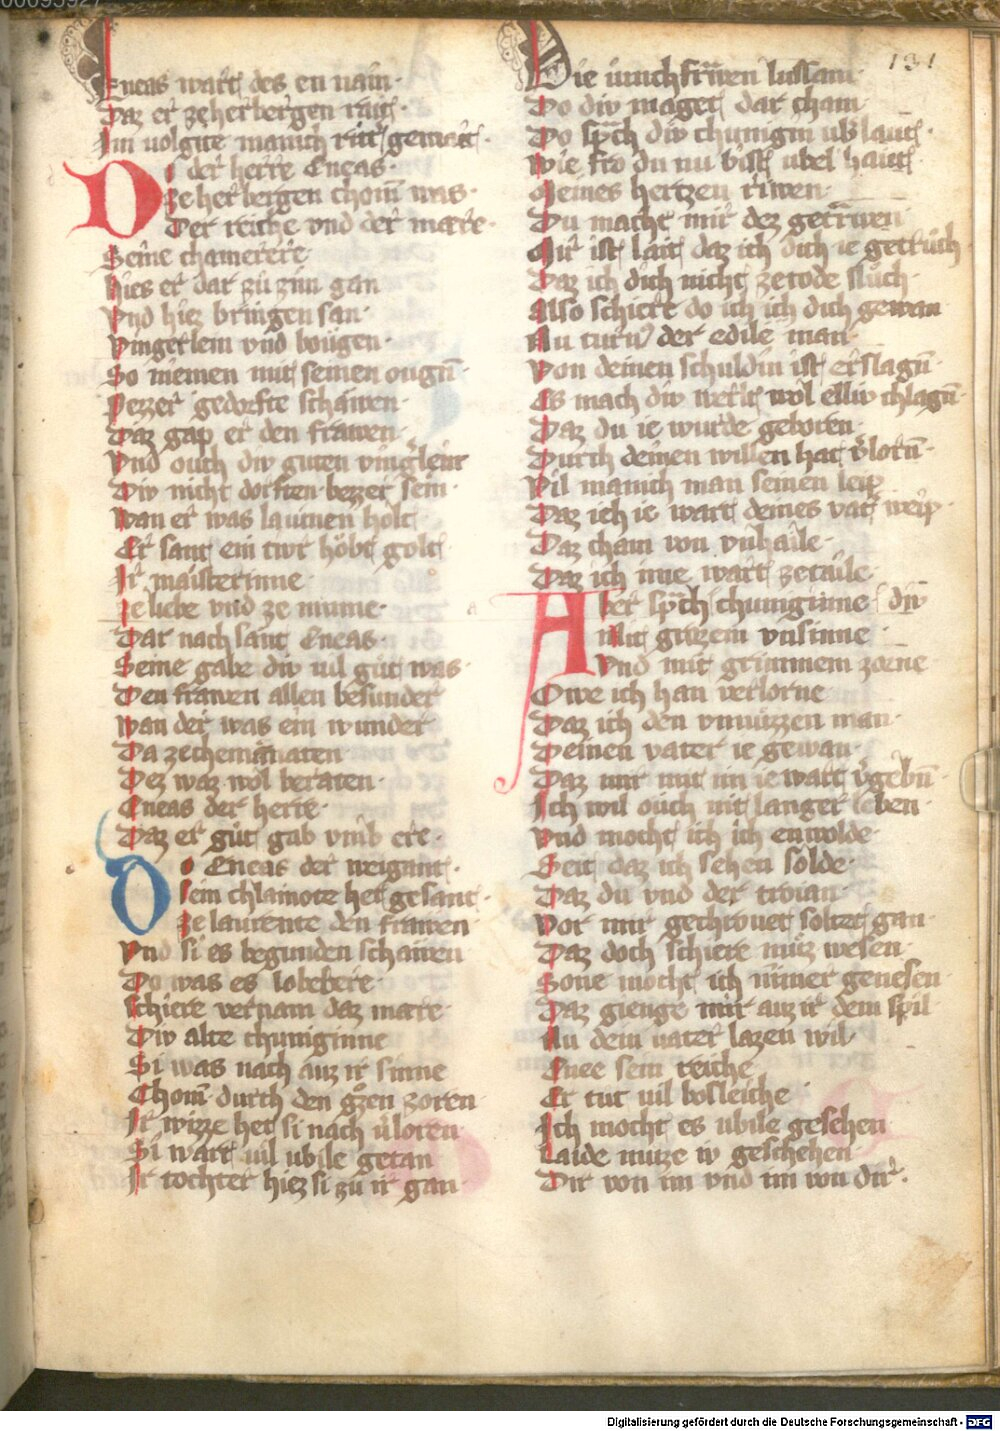 Eneas wart des en nain·
Daz er ze herbergen rait·
Im uolgite manich ritt gemait·
Do der herre Eneas·
Ze herbergen chom̄ was·
Der reiche vnd der mare·
Seine chamerere·
Hies er dar zů zim gan
Vnd hiez bringen san·
Vingerlein vnd boůgen·
So niemen mit seinen ougn̄·
Pezzer gedorfte schawen·
Daz gap er den frawen·
Vnd ouch div guten vinglein
Div nicht dorften bezzer sein·
Wan er was lauinen holt·
Er sant ein twr höbt golt·
Ir maisterinne·
Ze liebe vnd ze minne·
Dar nach sant Eneas·
Seine gabe div uil gůt was·
Den frawen allen besunder
Wan der was ein wunder
Da ze cheminaten
Dez waz wol beraten·
Eneas der herre·
Daz er gůt gab vmb ere·
Do Eneas der weigant·
Sein chlainote het gesant·
Ze laurente den frawen·
Vnd si es begunden schawen
Do was es lobebere
Schiere vernam daz mare·
Div alte chuniginne
Si was nach auz ir sinne
Chom̄ durch den gͦzen zoren·
Ir wizze het si nach ůloren·
Si wart uil ubile getan
Ir tochter hiez si zů ir gan·
Die iunchfrawen lussam·
Do div maget dar cham·
Do sp̄ch div chunigin ub̓ laut·
Wie fro du nu bist ubel haut·
Meines hertzen riwen·
Du macht mir dez getrwen
Mir ist lait daz ich dich ie getrůch
Daz ich dich nicht ze tode slůch·
Also schiere do ich ich dich gewan
Nu turn̓ der edile man·
Von deinen schuldin ist erslagn̄·
Es mach div werlt wol elliv chlagn̄·
Daz du ie wurde geboren·
Durch deinen willen hat v̓lorn̄·
Vil manich man seinen leip
Daz ich ie wart deines vat̓ weip·
Daz cham von vnhaile·
Daz ich ime wart ze taile·
Aber sp̄ch chuniginne div
Mit grozem vnsinne·
Vnd mit grimmem zorne
Owe ich han verlorne
Daz ich den vnnuzzen man·
Deinen vater ie gewan·
Daz mir mit im ie wart v̓gebn̄·
Ich wil ouch nit langer leben·
Vnd mocht ich ich enwolde·
Seit daz ich sehen solde·
Daz du vnd der troian·
Vor mir gechronet soltet gan·
Daz doch schiere můz wesen·
Sone mocht ich nimer genesen·
Daz gienge mir auz ir dem spil·
Nu dein uater lazen wil
Enee sein reiche
Er tut uil bosleiche
Ich mocht es ubile gesehen
Laide muze iv geschehen
Dir von im vnd im von dir·
131
Digitalisierung gefördert durch die Deutsche Forschungsgemeinschaft - DFG